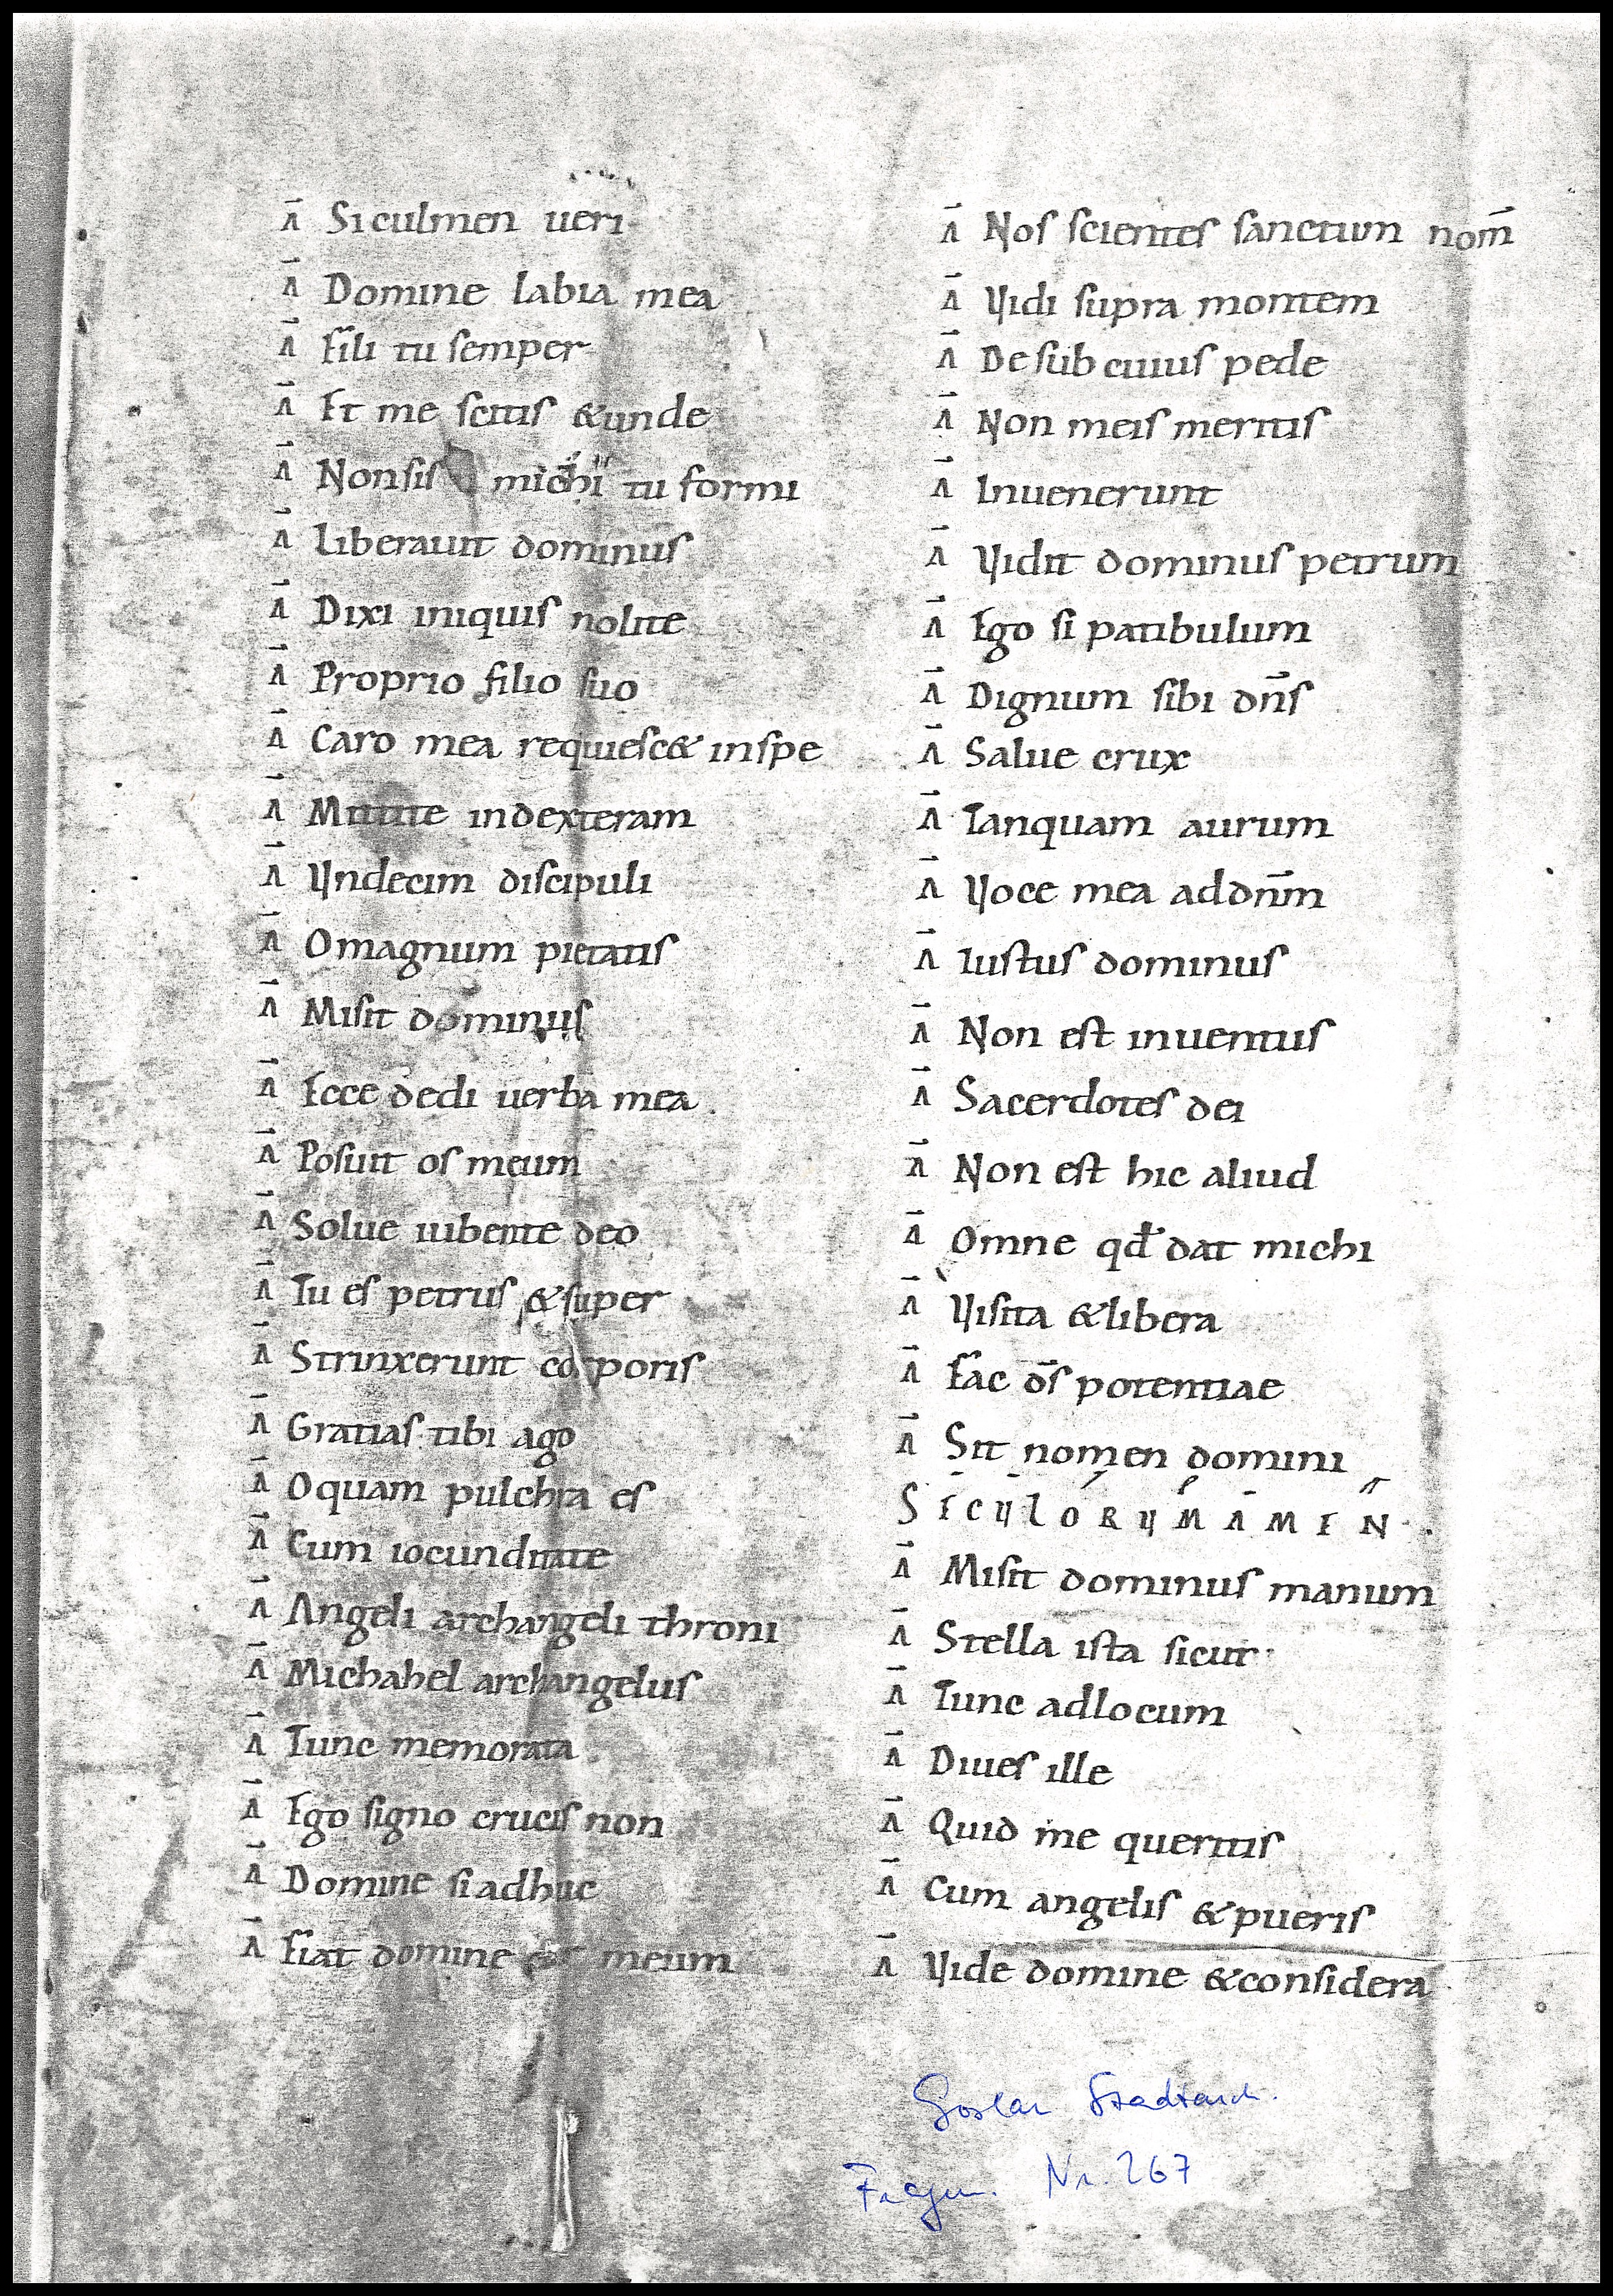 Ā Si culmen ueri
Ā Domine labia mea
Ā Fili tu semper
Ā Et me scitis & unde
Ā Non sis michi tu formi
Ā Liberauit dominus
Ā Dixi iniquis nolite
Ā Proprio filio suo
Ā Caro mea requiesc& inspe
Ā Mittite indexteram
Ā Vndecim discipuli
Ā Omagnum pietatis
Ā Misit dominus
Ā Ecce dedi uerba mea.
Ā Posuit os meum
Ā Solue iubente deo
Ā Tu es petrus & super
Ā Strinxerunt corporis
Ā Gratias tibi ago
Ā Oquam pulchra es
Ā Cum iocunditate
Ā Angeli archangeli throni
Ā Michahel archangelus
Ā Tunc memorata
Ā Ego signo crucis non
Ā Domine si adhuc
Ā Fiat domine meum
Ā Nos scientes sanctum nom̄
Ā Vidi supra montem
Ā De sub cuius pede
Ā Non meis meritis
Ā Inuenerunt
Ā Vidit dominus petrum
Ā Ego si patibulum
Ā Dignum sibi dn̄s
Ā Salue crux
Ā Tanquam aurum
Ā Voce mea addn̄m
Ā Iustus dominus
Ā Non est inuentus
Ā Sacerdotes dei
Ā Non est hic aliud
Ā Omne qd̄ dat michi
Ā Visita & libera
Ā Fac d̄s potentiae
Ā Sit nomen domini
SECVLORVM AMEN.
Ā Misit dominus manum
Ā Stella ista sicut
Ā Tunc adlocum
Ā Diues ille
Ā Quid me queritis
Ā Cum angelis & pueris
Ā Vide domine & considera
Goslar Stadtarch.
Fragm. Nr. 267